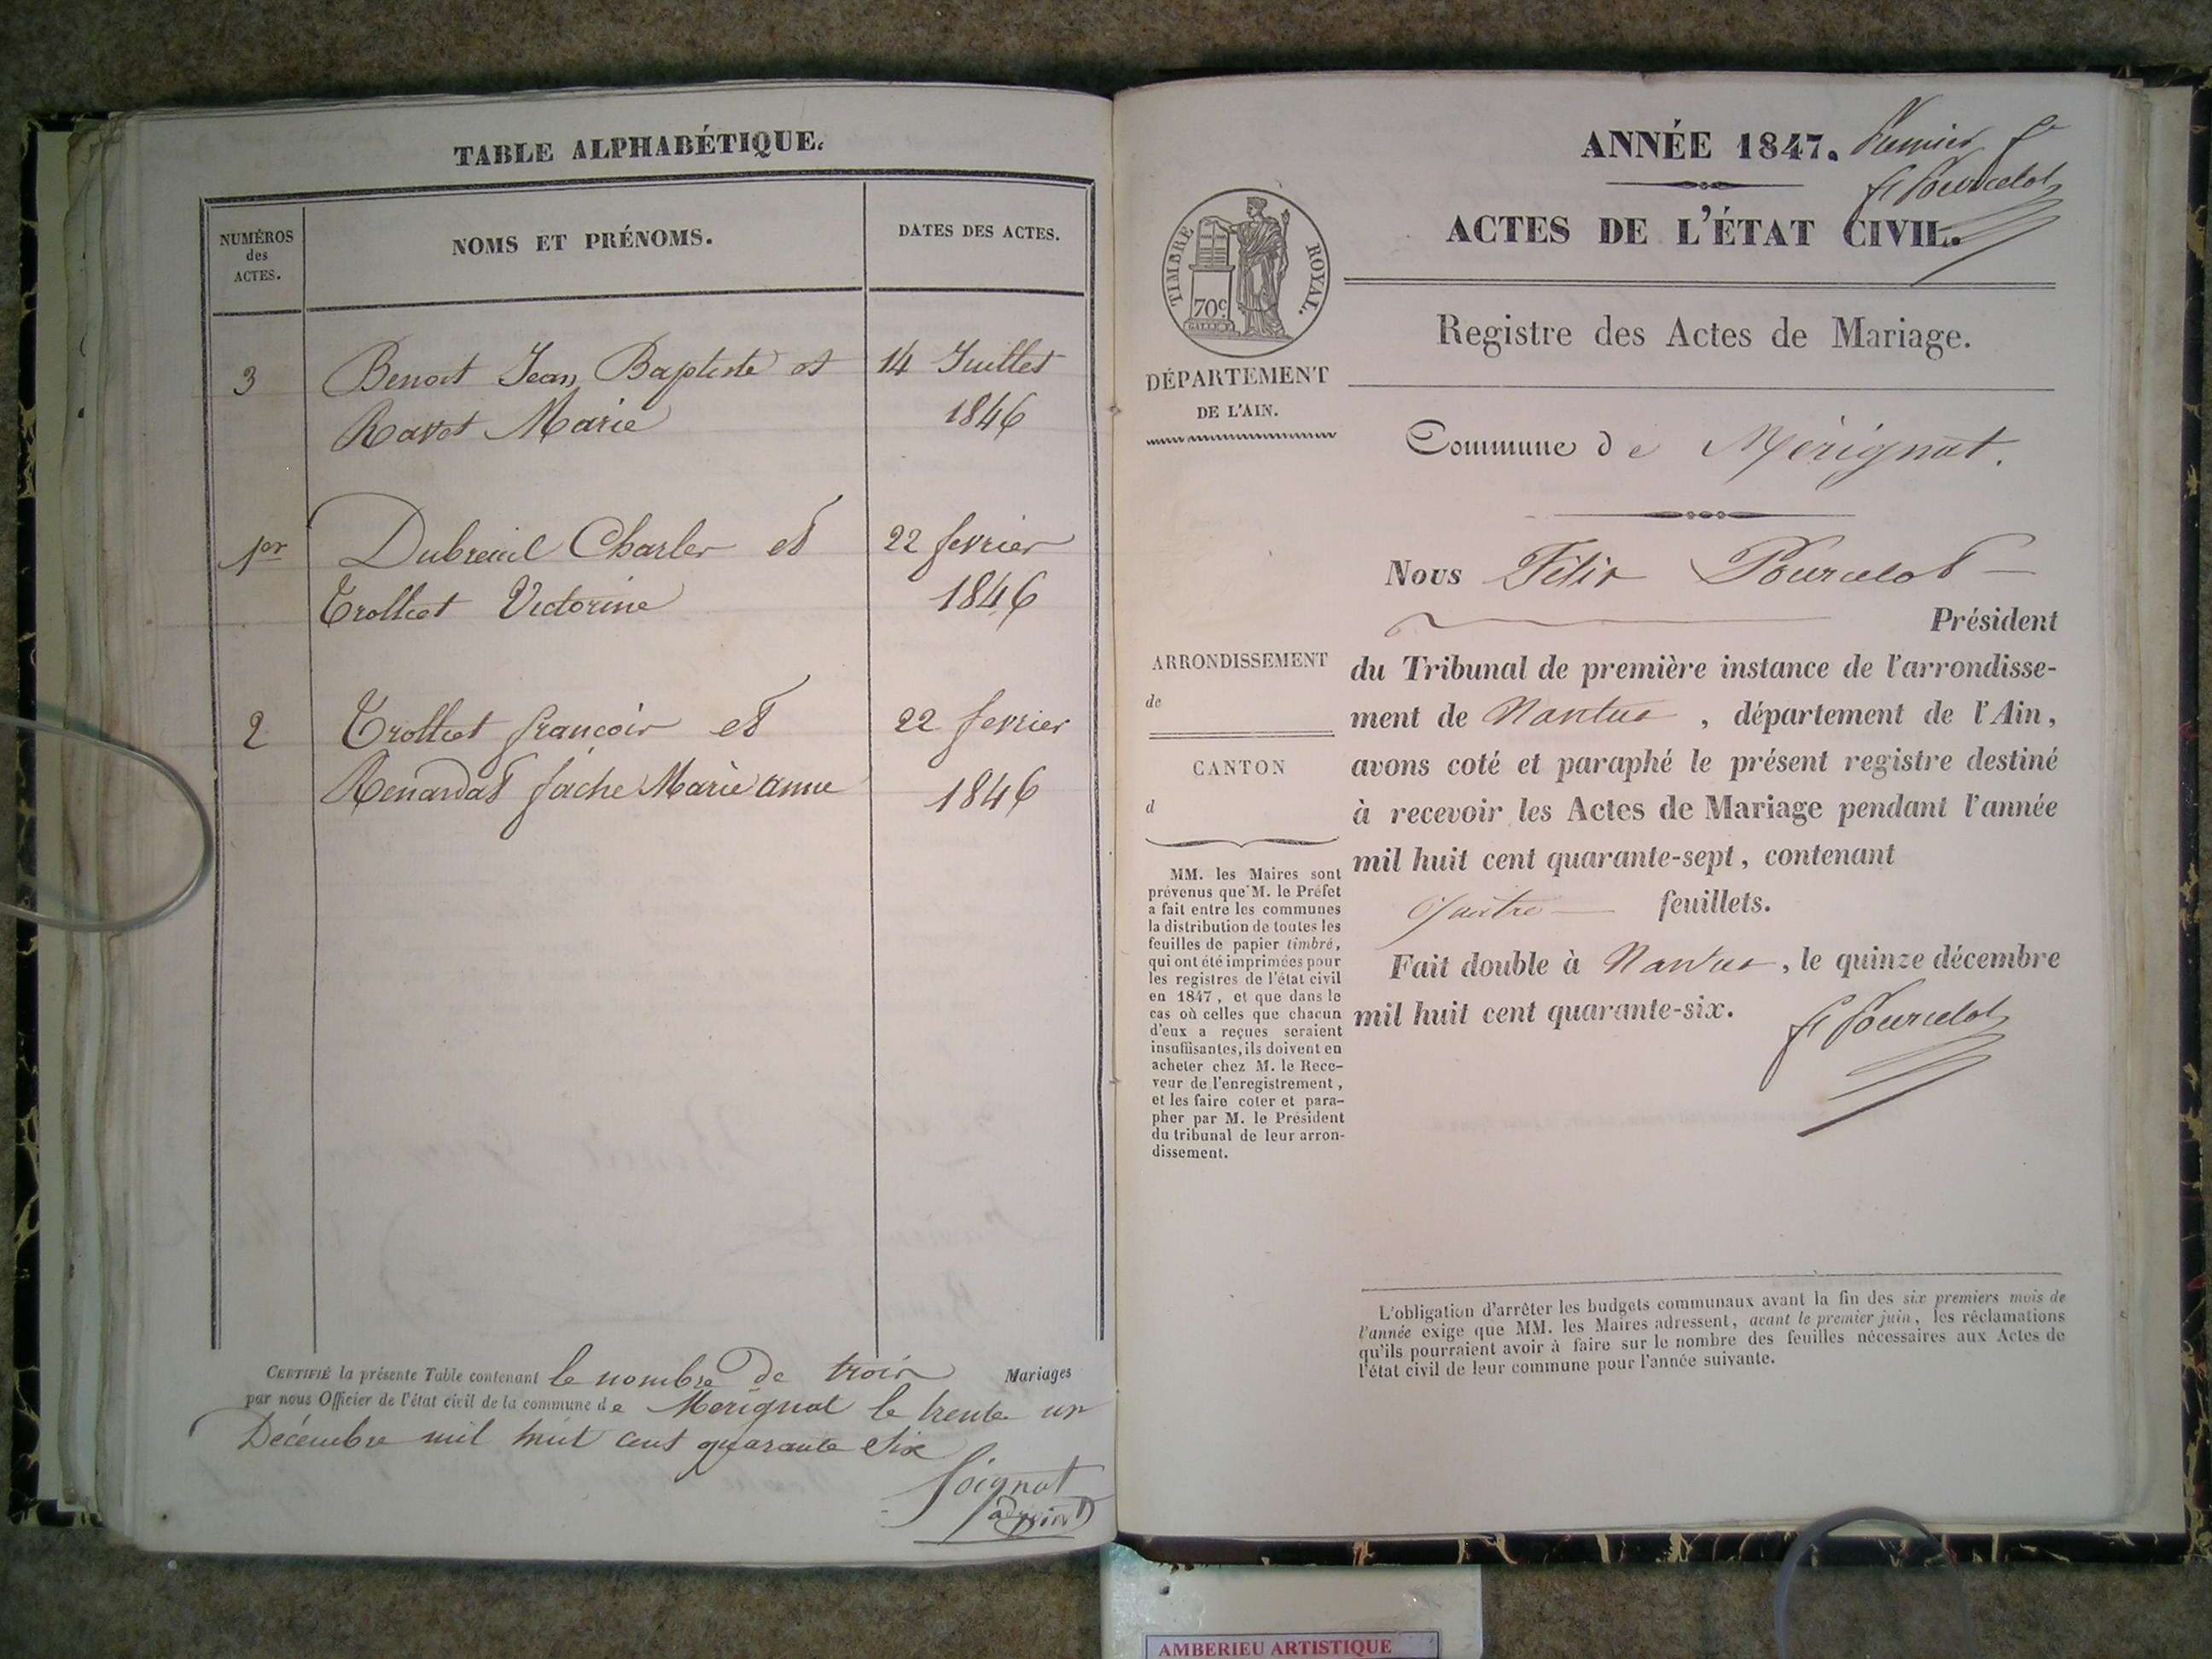 TABLE ALPHABÉTIQUE.
NUMÉROS
des
ACTES.
NOMS ET PRÉNOMS.
DATES DES ACTES.
3 Benoit Jean Baptiste et 14 Juillet
Ravet Marie 1846
1er Dubreuil Charles et 22 fevrier
Trolliet Victorine 1846
2 Trolliet francois et 22 fevrier
Renardat fache Marie anne 1846
CERTIFIÉ la présente Table contenant le nombre de trois Mariages
par nous Officier de l'état civil de la commune de Merignat le trente un
Décembre mil huit cent quarante Six
Soignat
adjoint
ANNÉE 1847. Premier f
f Pourcelot
ACTES DE L'ÉTAT CIVIL.
TIMBRE ROYAL.
70c
Registre des Actes de Mariage.
DÉPARTEMENT
DE L'AIN.
Commune de Mérignat.
Nous Félix Pourcelot
Président
ARRONDISSEMENT
de
CANTON
d
du Tribunal de première instance de l'arrondisse-
ment de Nantua, département de l'Ain,
avons coté et paraphé le présent registre destiné
à recevoir les Actes de Mariage pendant l'année
mil huit cent quarante-sept, contenant
Quatre feuillets.
Fait double à Nantua, le quinze décembre
mil huit cent quarante-six.
f Pourcelot
MM. les Maires sont
prévenus que M. le Préfet
a fait entre les communes
la distribution de toutes les
feuilles de papier timbré,
qui ont été imprimées pour
les registres de l'état civil
en 1847, et que dans le
cas où celles que chacun
d'eux a reçues seraient
insuffisantes, ils doivent en
acheter chez M. le Rece-
veur de l'enregistrement,
et les faire coter et para-
pher par M. le Président
du tribunal de leur arron-
dissement.
L'obligation d'arrêter les budgets communaux avant la fin des six premiers mois de
l'année exige que MM. les Maires adressent, avant le premier juin, les réclamations
qu'ils pourraient avoir à faire sur le nombre des feuilles nécessaires aux Actes de
l'état civil de leur commune pour l'année suivante.
AMBERIEU ARTISTIQUE